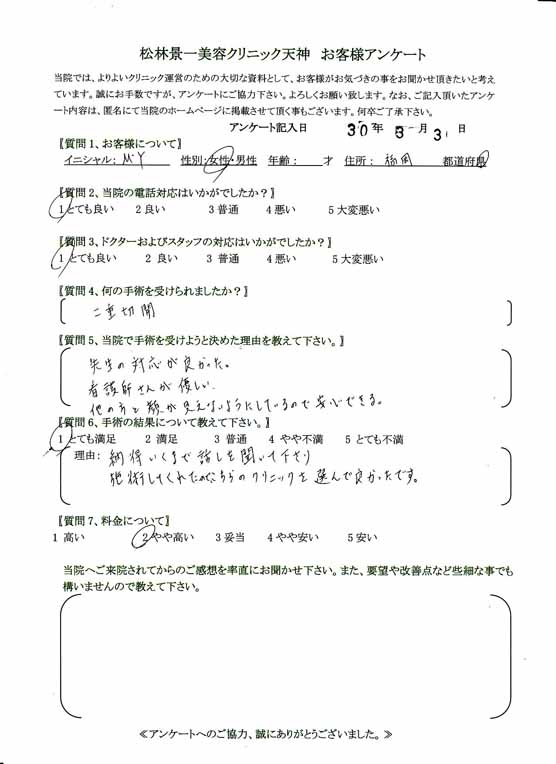 松林景一美容クリニック天神　お客様アンケート
当院では、よりよいクリニック運営のための大切な資料として、お客様がお気づきの事をお聞かせ頂きたいと考え
ています。誠にお手数ですが、アンケートにご協力下さい。よろしくお願い致します。なお、ご記入頂いたアンケ
ート内容は、匿名にて当院のホームページに掲載させて頂く事もございます。何卒ご了承下さい。
アンケート記入日　30年 5月 3 日
【質問1、お客様について】
イニシャル： M Y　性別：女性・男性　年齢：　才　住所： 福岡　都道府県
【質問2、当院の電話対応はいかがでしたか？】
1とても良い　2良い　3普通　4悪い　5大変悪い
【質問3、ドクターおよびスタッフの対応はいかがでしたか？】
1とても良い　2 良い　3 普通　4悪い　5大変悪い
【質問4、何の手術を受けられましたか？】
二重切開
【質問5、当院で手術を受けようと決めた理由を教えて下さい。】
先生の対応が良かった。
看護師さんが優しい
他の方と顔が見えないようにしているので安心できる。
【質問6、手術の結果について教えて下さい。】
1とても満足　2 満足　3 普通　4 やや不満　5 とても不満
理由： 納得いくまで話しを聞いて下さり
施術してくれたのでこちらのクリニックを選んで良かったです。
【質問7、料金について】
1 高い　2やや高い　3妥当　4やや安い　5安い
当院へご来院されてからのご感想を率直にお聞かせ下さい。また、要望や改善点など些細な事でも
構いませんので教えて下さい。
≪アンケートへのご協力、誠にありがとうございました。≫